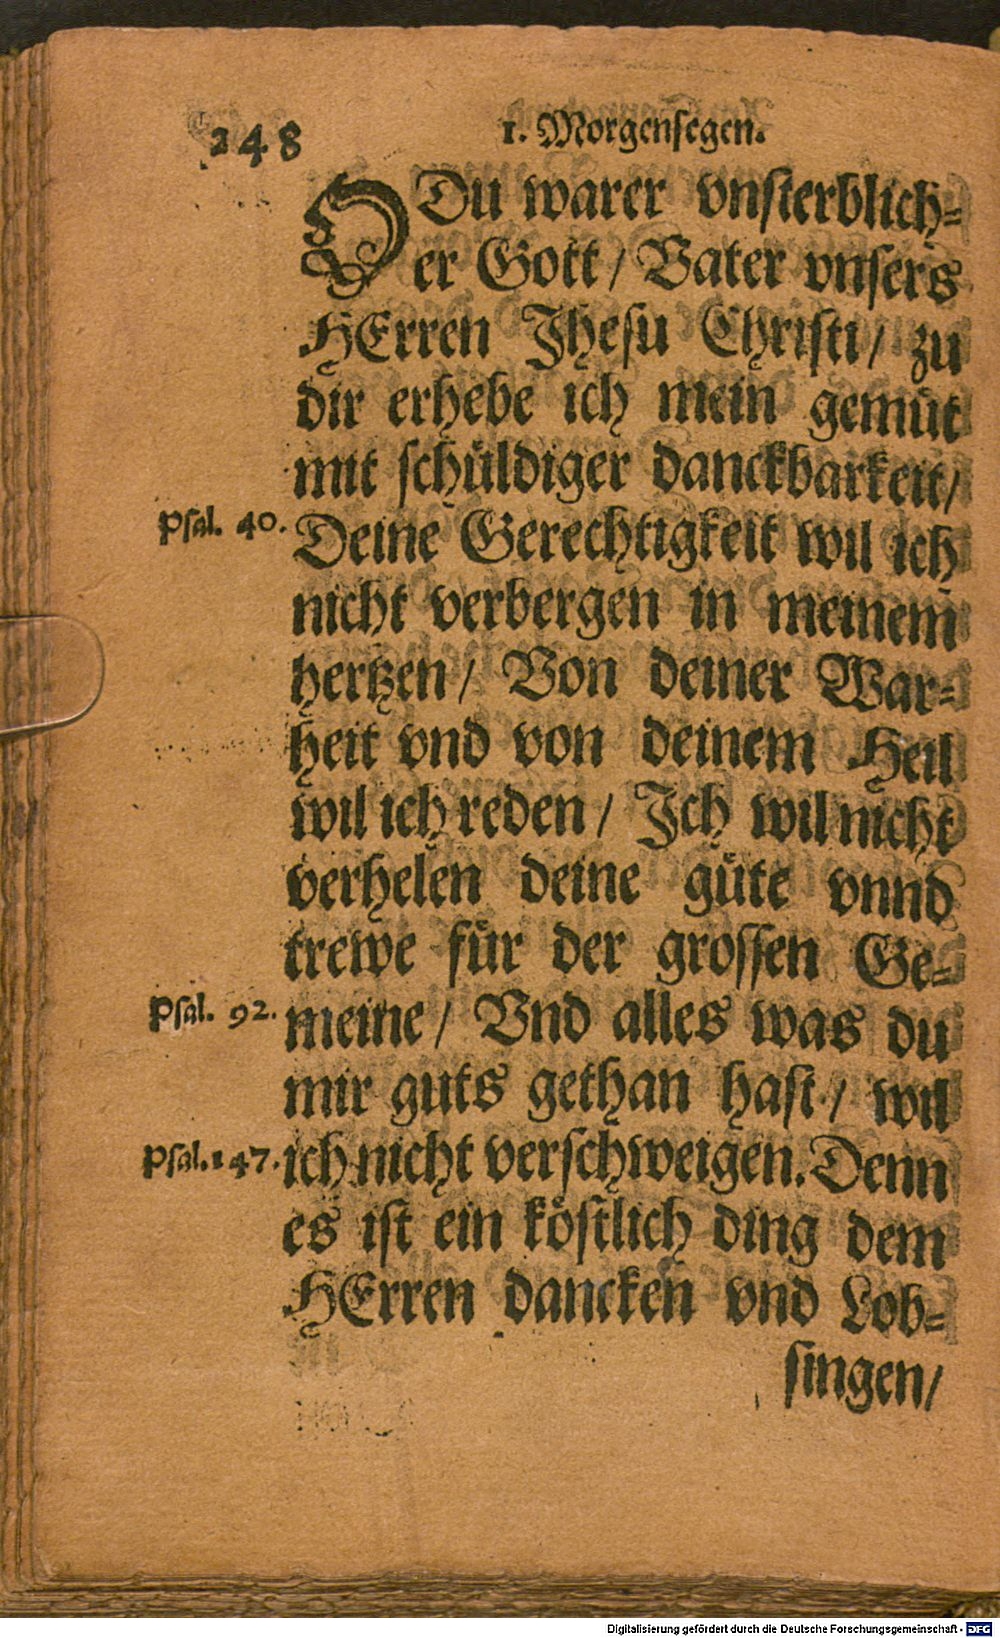 248
1. Morgensegen.
O Du warer vnsterblich-
er Gott / Vater vnsers
HErren Jhesu Christi / zu
dir erhebe ich mein gemüt
mit schüldiger danckbarkeit /
Psal. 40. Deine Gerechtigkeit wil ich
nicht verbergen in meinem
hertzen / Von deiner War-
heit vnd von deinem Heil
wil ich reden / Ich wil nicht
verhelen deine güte vnnd
trewe für der grossen Ge-
Psal. 92. meine / Vnd alles was du
mir guts gethan hast / wil
Psal. 147. ich nicht verschweigen. Denn
es ist ein köstlich ding dem
HErren dancken vnd Lob-
singen /
Digitalisierung gefördert durch die Deutsche Forschungsgemeinschaft - DFG